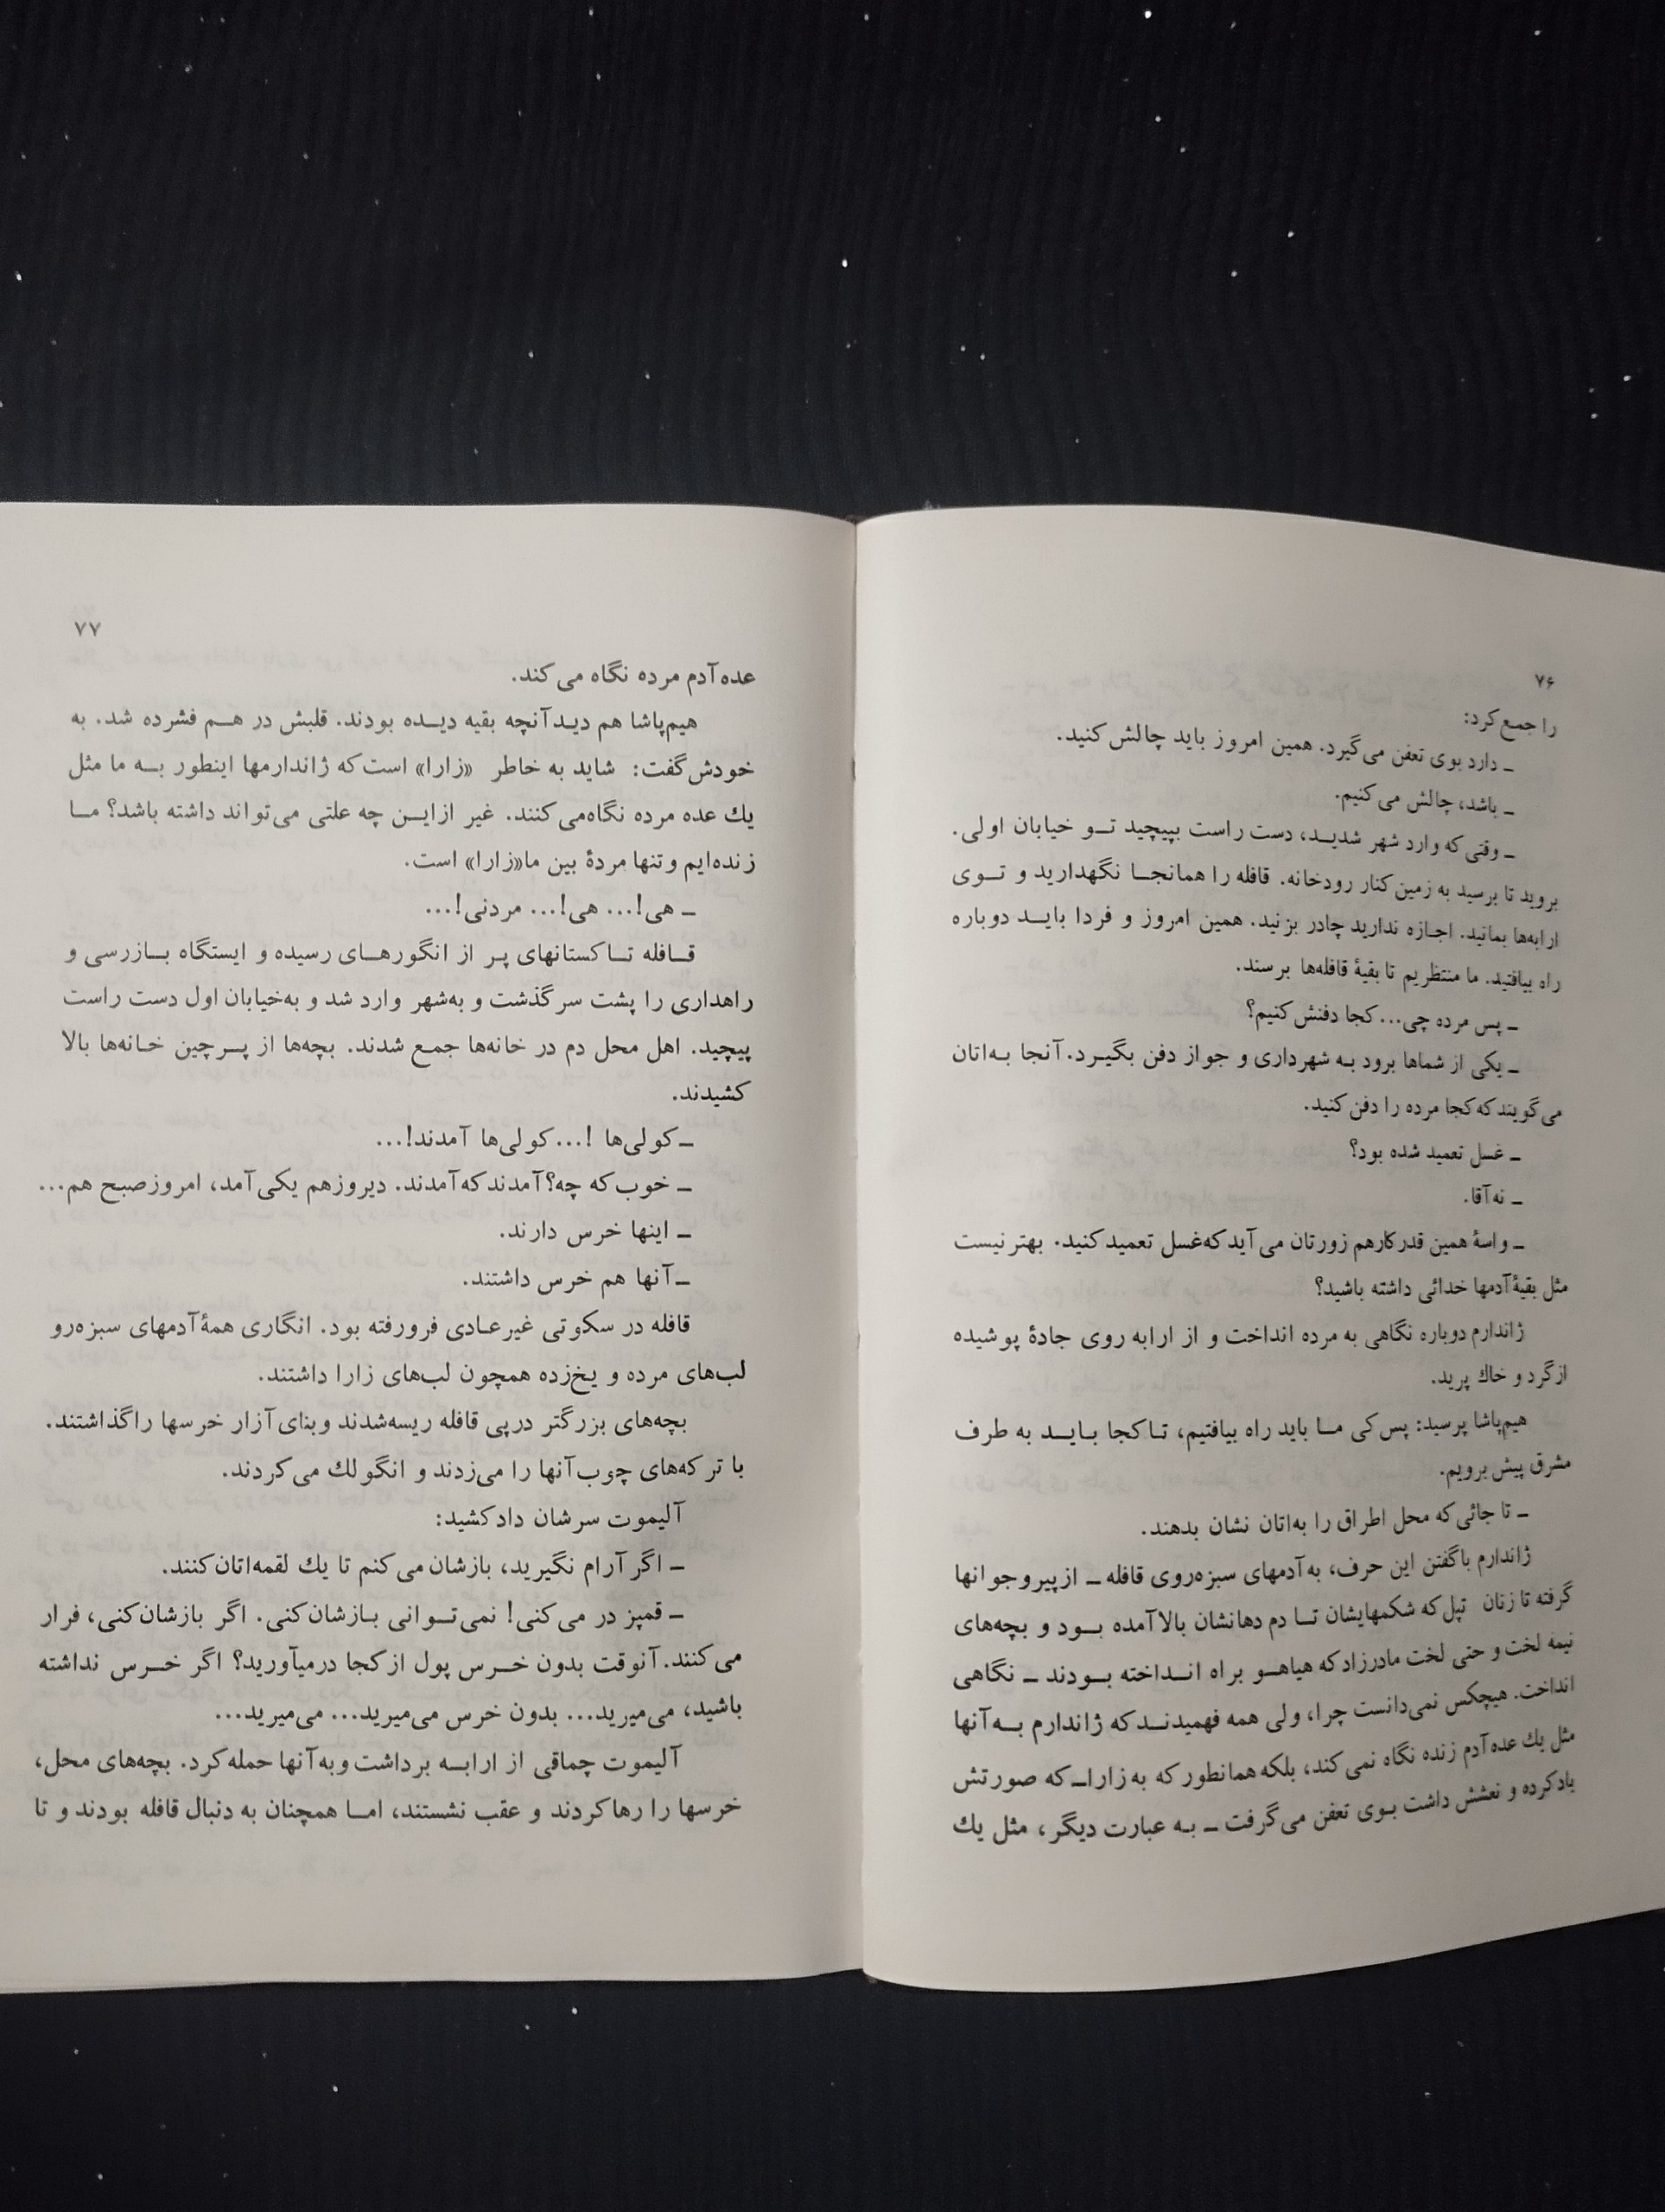 ۷۶
را جمع کرد:
ـ دارد بوی تعفن می‌گیرد. همین امروز باید چالش کنید.
ـ باشد، چالش می‌کنیم.
ـ وقتی که وارد شهر شدیـد، دست راست بپیچید تـو خیابان اولی.
بروید تا برسید به زمین کنار رودخانه. قافله را همانجـا نگهدارید و تـوی
ارابه‌ها بمانید. اجـازه ندارید چادر بزنید. همین امروز و فردا بایـد دوباره
راه بیافتید. ما منتظریم تا بقیهٔ قافله‌ها برسند.
ـ پس مرده چی... کجا دفنش کنیم؟
ـ یکی از شماها برود به شهرداری و جواز دفن بگیـرد. آنجا به‌اتان
می‌گویند که کجا مرده را دفن کنید.
ـ غسل تعمید شده بود؟
ـ نه آقا.
ـ واسهٔ همین قدر کارهم زورتان می‌آید که غسل تعمید کنید. بهتر نیست
مثل بقیهٔ آدمها خدائی داشته باشید؟
ژاندارم دوباره نگاهی به مرده انداخت و از ارابه روی جادهٔ پوشیده
از گرد و خاك پرید.
هیم‌پاشا پرسید: پس کی مـا باید راه بیافتیم، تـا کجا بـایـد به طرف
مشرق پیش برویم.
ـ تا جائی که محل اطراق را به‌اتان نشان بدهند.
ژاندارم با گفتن این حرف، به آدمهای سبزه‌روی قافله ـ از پیر و جوانها
گرفته تا زنان تپل که شکمهایشان تـا دم دهانشان بالا آمده بـود و بچه‌های
نیمه لخت و حتی لخت مادرزاد که هیاهـو براه انـداخته بـودند ـ نگاهی
انداخت. هیچکس نمی‌دانست چرا، ولی همه فهمیدنـد که ژاندارم بـه آنها
مثل یك عده آدم زنده نگاه نمی‌کند، بلکه همانطور که به زارا ـ که صورتش
باد کرده و نعشش داشت بـوی تعفن می‌گرفت ـ بـه عبارت دیگر، مثل یك
۷۷
عده آدم مرده نگاه می‌کند.
هیم‌پاشا هم دیـد آنچه بقیه دیـده بودند. قلبش در هـم فشرده شد. به
خودش گفت: شاید به خاطر «زارا» است که ژاندارمها اینطور بـه ما مثل
یك عده مرده نگاه می‌کنند. غیر از ایـن چه علتی می‌تواند داشته باشد؟ مـا
زنده‌ایم و تنها مردهٔ بین ما «زارا» است.
ـ هی!... هی!... مردنی!...
قـافله تـاکستانهای پـر از انگورهـای رسیده و ایستگاه بـازرسی و
راهداری را پشت سر گذشت و به‌شهر وارد شد و به‌خیابان اول دست راست
پیچید. اهل محل دم در خانه‌ها جمع شدند. بچه‌ها از پـرچین خـانه‌ها بالا
کشیدند.
ـ کولی‌ها !... کولی‌ها آمدند!...
ـ خوب که چه؟ آمدند که آمدند. دیروز هم یکی آمد، امروز صبح هم...
ـ اینها خرس دارند.
ـ آنها هم خرس داشتند.
قافله در سکوتی غیرعـادی فرورفته بود. انگاری همهٔ آدمهای سبزه‌رو
لب‌های مرده و یخ‌زده همچون لب‌های زارا داشتند.
بچه‌های بزرگتر در پی قافله ریسه‌شدند و بنای آزار خرسها را گذاشتند.
با ترکه‌های چوب آنها را می‌زدند و انگولك می‌کردند.
آلیموت سرشان داد کشید:
ـ اگر آرام نگیرید، بازشان می‌کنم تا یك لقمه‌اتان کنند.
ـ قمپز در می‌کنی! نمی‌تـوانی بـازشان کنی. اگر بازشان کنی، فرار
می‌کنند. آنوقت بدون خـرس پول از کجا درمیآورید؟ اگر خـرس نداشته
باشید، می‌میرید... بدون خرس می‌میرید... می‌میرید...
آلیموت چماقی از ارابـه برداشت و به آنها حمله کرد. بچه‌های محل،
خرسها را رها کردند و عقب نشستند، امـا همچنان به دنبال قافله بودند و تا